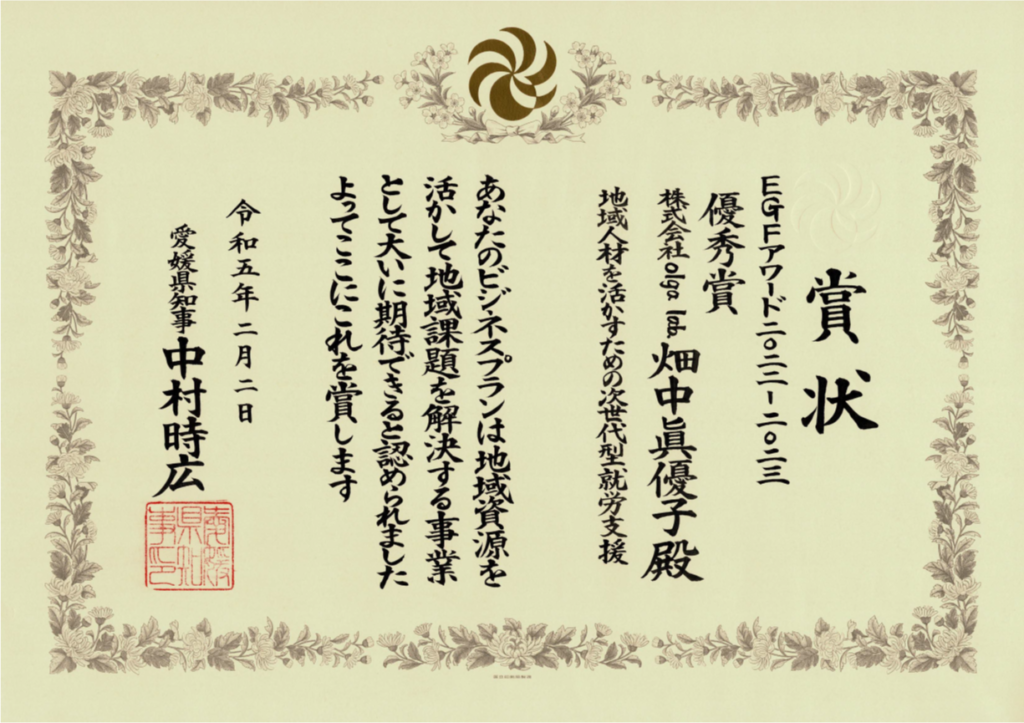 賞状
EGFアワード二〇二二-二〇二三
優秀賞
株式会社olga lab. 畑中眞優子殿
地域人材を活かすための次世代型就労支援
あなたのビジネスプランは地域資源を
活かして地域課題を解決する事業
として大いに期待できると認められました
よってここにこれを賞します
令和五年二月二日
愛媛県知事 中村時広
愛媛県知事印